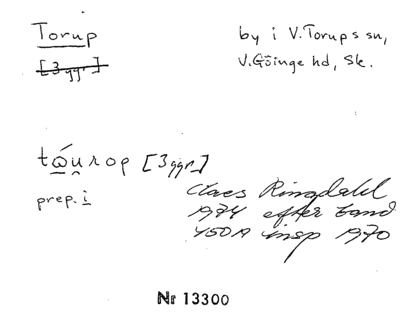 Torup
by i V. Torups sn,
[3 ggr.]
V. Göinge hd, Sk.
tώu̯rop [3 ggr.]
prep. i
Claes Ringdahl
1974 efter band
450A insp 1970
Nr 13300